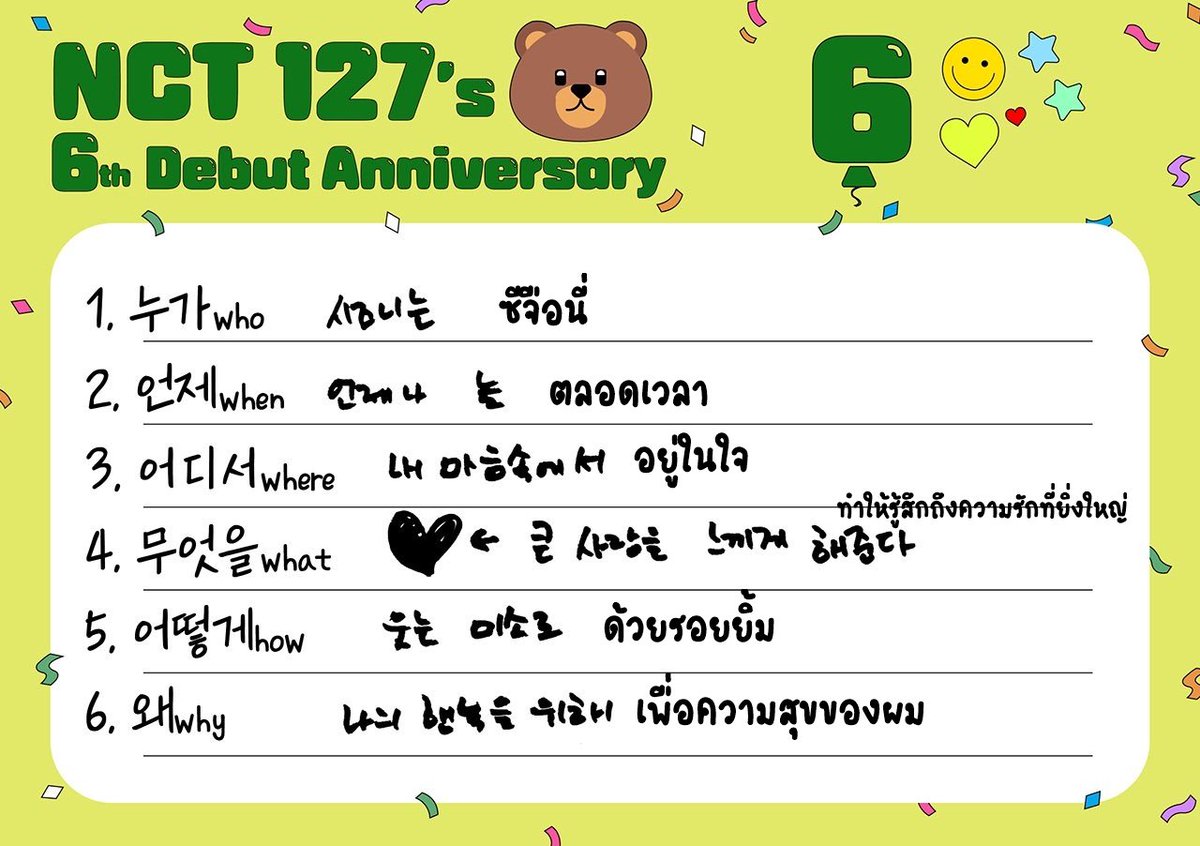 NCT 127's
6th Debut Anniversary
6
1. 누가 who 시즈니는 ซีจือนี่
2. 언제 when 언제나 늘 ตลอดเวลา
3. 어디서 where 내 마음속에서 อยู่ในใจ
ทำให้รู้สึกถึงความรักที่ยิ่งใหญ่
4. 무엇을 what ♥ ← 큰 사랑을 느끼게 해준다
5. 어떻게 how 웃는 미소로 ด้วยรอยยิ้ม
6. 왜 why 나의 행복을 위해 เพื่อความสุขของผม